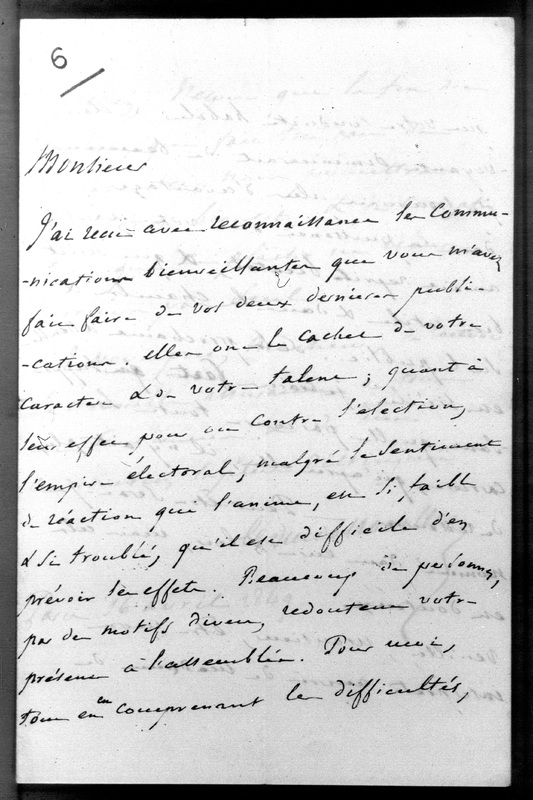 6
Monsieur
J'ai reçu avec reconnaissance les commu-
-nications bienveillantes que vous m'avez
fait faire de vos deux dernieres publi-
-cations. elles ont le cachet de votre
caractere & de votre talent; quant à
leur effet pour ou contre l'election,
l'empire électoral, malgré le sentiment
de réaction qui l'anime, est si faible
& si troublé, qu'il est difficile d'en
prévoir les effets. Beaucoup de personnes,
par des motifs divers, redoutent votre
présence à l'assemblée. Pour moi,
tout en en comprenant les difficultés,